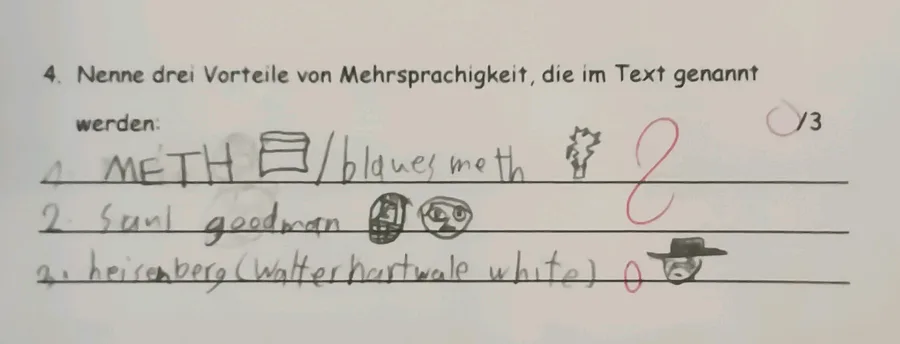 4. Nenne drei Vorteile von Mehrsprachigkeit, die im Text genannt
werden: 0/3
1. METH / blaues meth ?
2. Saul goodman
3. heisenberg (Walter hartwale white)